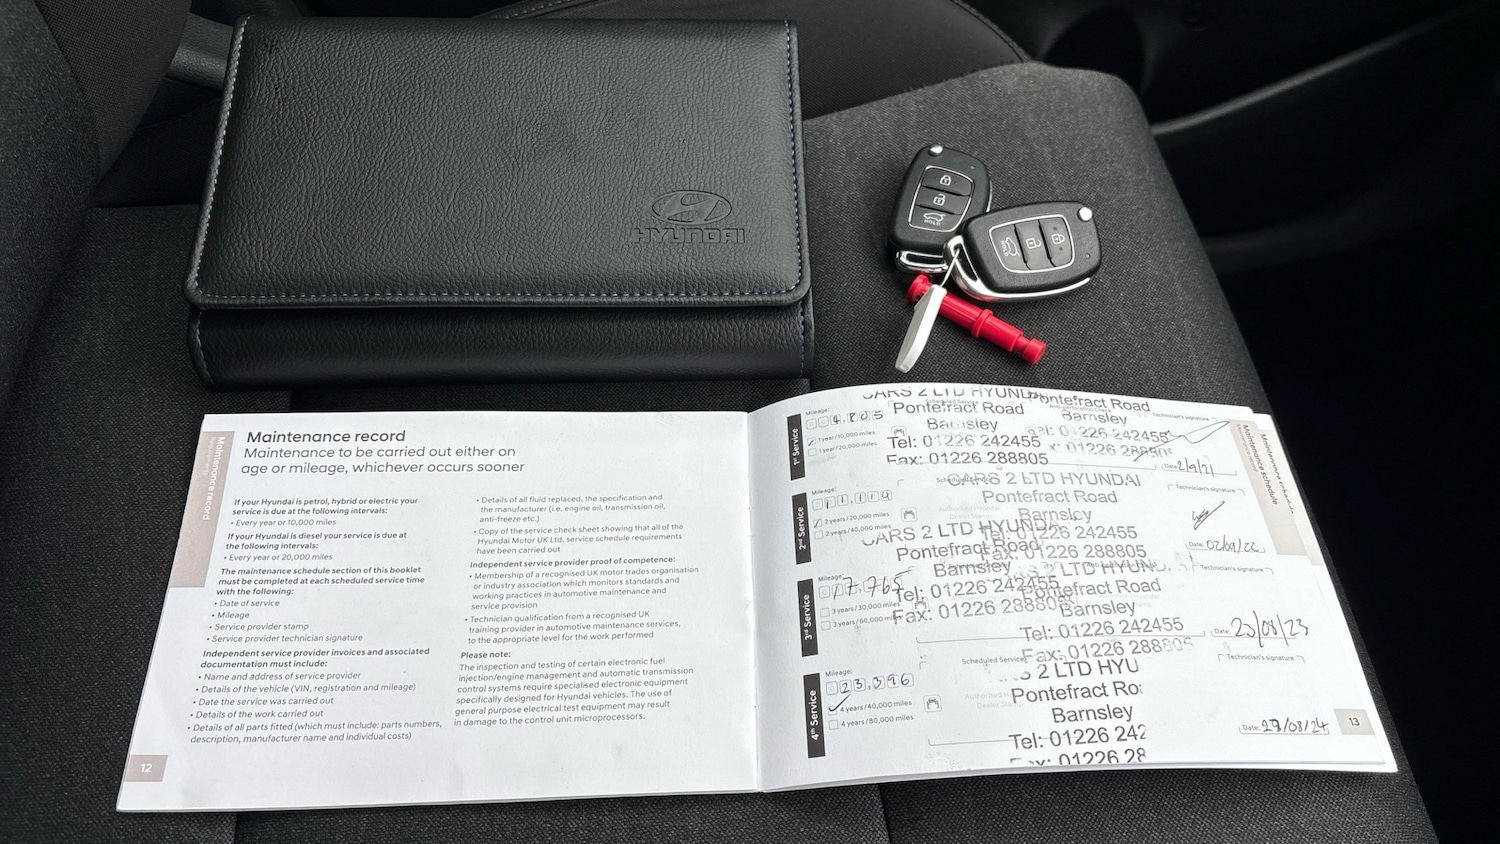 HYUNDAI
HOLD
HOLD
Maintenance record
Maintenance record
Maintenance to be carried out either on
age or mileage, whichever occurs sooner
If your Hyundai is petrol, hybrid or electric your
service is due at the following intervals:
• Every year or 10,000 miles
If your Hyundai is diesel your service is due at
the following intervals:
• Every year or 20,000 miles
The maintenance schedule section of this booklet
must be completed at each scheduled service time
with the following:
• Date of service
• Mileage
• Service provider stamp
• Service provider technician signature
Independent service provider invoices and associated
documentation must include:
• Name and address of service provider
• Details of the vehicle (VIN, registration and mileage)
• Date the service was carried out
• Details of the work carried out
• Details of all parts fitted (which must include: parts numbers,
description, manufacturer name and individual costs)
12
• Details of all fluid replaced, the specification and
the manufacturer (i.e. engine oil, transmission oil,
anti-freeze etc.)
• Copy of the service check sheet showing that all of the
Hyundai Motor UK Ltd. service schedule requirements
have been carried out
Independent service provider proof of competence:
• Membership of a recognised UK motor trades organisation
or industry association which monitors standards and
working practices in automotive maintenance and
service provision
• Technician qualification from a recognised UK
training provider in automotive maintenance services,
to the appropriate level for the work performed
Please note:
The inspection and testing of certain electronic fuel
injection/engine management and automatic transmission
control systems require specialised electronic equipment
specifically designed for Hyundai vehicles. The use of
general purpose electrical test equipment may result
in damage to the control unit microprocessors.
1st Service
Mileage:
04,805
1 year/10,000 miles
1 year/20,000 miles
CARS 2 LTD HYUNDAI
Pontefract Road
Barnsley
Tel: 01226 242455
Fax: 01226 288805
Pontefract Road
Barnsley
Technician's signature
Date: 2/9/21
2nd Service
Mileage:
11,114
2 years/20,000 miles
2 years/40,000 miles
CARS 2 LTD HYUNDAI
Pontefract Road
Barnsley
Tel: 01226 242455
Fax: 01226 288805
Technician's signature
Date: 02/09/22
3rd Service
Mileage:
17765
3 years/30,000 miles
3 years/60,000 miles
CARS 2 LTD HYUNDA
Pontefract Road
Barnsley
Tel: 01226 242455
Fax: 01226 288805
LTD HYUNDAI
Pontefract Road
Barnsley
Tel: 01226 242455
Fax: 01226 288805
Technician's signature
4th Service
Mileage:
23,396
4 years/40,000 miles
4 years/80,000 miles
Scheduled Service
2 LTD HYU
Pontefract Ro
Barnsley
Tel: 01226 242
01226 28
Technician's signature
Date: 27/08/24
Maintenance schedule
Maintenance schedule
13